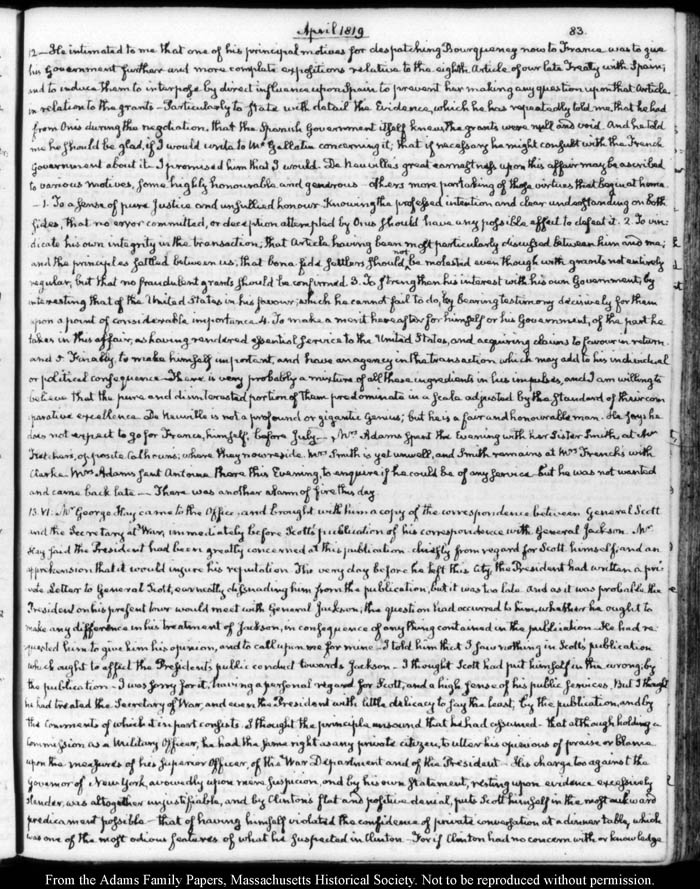 April 1819
83.
12— He intimated to me that one of his principal motives for despatching Bourqueney now to France was to give
his Government further and more complete expositions relative to the eighth Article of our late Treaty with Spain;
and to induce them to interpose by direct influence upon Spain to prevent her making any question upon that Article,
in relation to the grants— Particularly to state with detail the Evidence, which he has repeatedly told me, that he had
from Onis during the negotiation, that the Spanish Government itself knew the grants were null and void. And he told
me he should be glad, if I would write to Mr Gallatin concerning it; that if necessary he might consult with the French
Government about it— I promised him that I would. De Neuville's great earnestness upon this affair may be ascribed
to various motives, some highly honourable and generous— others more partaking of those virtues that begin at home.
— 1. To a sense of pure Justice and unsullied honour. Knowing the professed intention and clear understanding on both
sides, that no error committed, or deception attempted by Onis should have any possible effect to defeat it. 2. To vin-
dicate his own integrity in the transaction; that Article having been most particularly discussed between him and me;
and the principles settled between us; that bona fide settlers should not be molested even though with grants not entirely
regular, but that no fraudulent grants should be confirmed. 3. To strengthen his interest with his own Government, by
interesting that of the United States in his favour; which he cannot fail to do, by bearing testimony decisively for them
upon a point of considerable importance. 4. To make a merit hereafter for himself or his Government, of the part he
takes in this affair, as having rendered essential service to the United States, and acquiring claims to favour in return.
and 5. Finally, to make himself important, and have an agency in the transaction which may add to his individual
or political consequence— There is very probably a mixture of all these ingredients in his impulses, and I am willing to
believe that the pure and disinterested portion of them predominate in a scale adjusted by the standard of their com-
parative excellence. De Neuville is not a profound or gigantic Genius; but he is a fair and honourable man. He says he
does not expect to go for France, himself, before July— Mrs Adams spent the Evening with her Sister Smith, at
opposite Calhoun's; where they now reside. Mrs Smith is yet unwell, and Smith remains at Mrs French's with
Clarke. Mrs Adams sent Antoine there this Evening, to enquire if he could be of any service but he was not wanted
and came back late— There was another alarm of fire this day.
13. VI. Mr George Hay came to the Office, and brought with him a copy of the correspondence between General Scott
and the Secretary at War, immediately before Scott's publication of his correspondence with General Jackson. Mr
Hay said the President had been greatly concerned at this publication chiefly from regard for Scott himself; and an
apprehension that it would injure his reputation. The very day before he left this City, the President had written a pri-
vate Letter to General Scott, earnestly dissuading him from the publication, but it was too late. And as it was probable the
President on his present tour would meet with General Jackson; the question had occurred to him, whether he ought to
make any difference in his treatment of Jackson, in consequence of any thing contained in the publication— He had re-
quested him to give him his opinion, and to call upon me for mine— I told him that I saw nothing in Scott's publication
which ought to affect the President's public conduct towards Jackson— I thought Scott had put himself in the wrong, by
the publication— I was sorry for it, having a personal regard for Scott, and a high sense of his public services. But I thought
he had treated the Secretary of War, and even the President with little delicacy to say the least, by the publication, and by
the comments of which it in part consists. I thought the principle unsound that he had assumed— that although holding a
Commission as a Military Officer, he had the same right as any private citizen, to utter his opinions of praise or blame
upon the measures of his Superior Officer, of the War Department and of the President— His charge too against the
Governor of New York, avowedly upon mere suspicion, and by his own statement, resting upon evidence excessively
slender, was altogether unjustifiable, and by Clinton's flat and positive denial, puts Scott himself in the most awkward
predicament possible— that of having himself violated the confidence of private conversation at a dinner table, which
was one of the most odious features of what he suspected in Clinton. For if Clinton had no concern with or knowledge
From the Adams Family Papers, Massachusetts Historical Society. Not to be reproduced without permission.